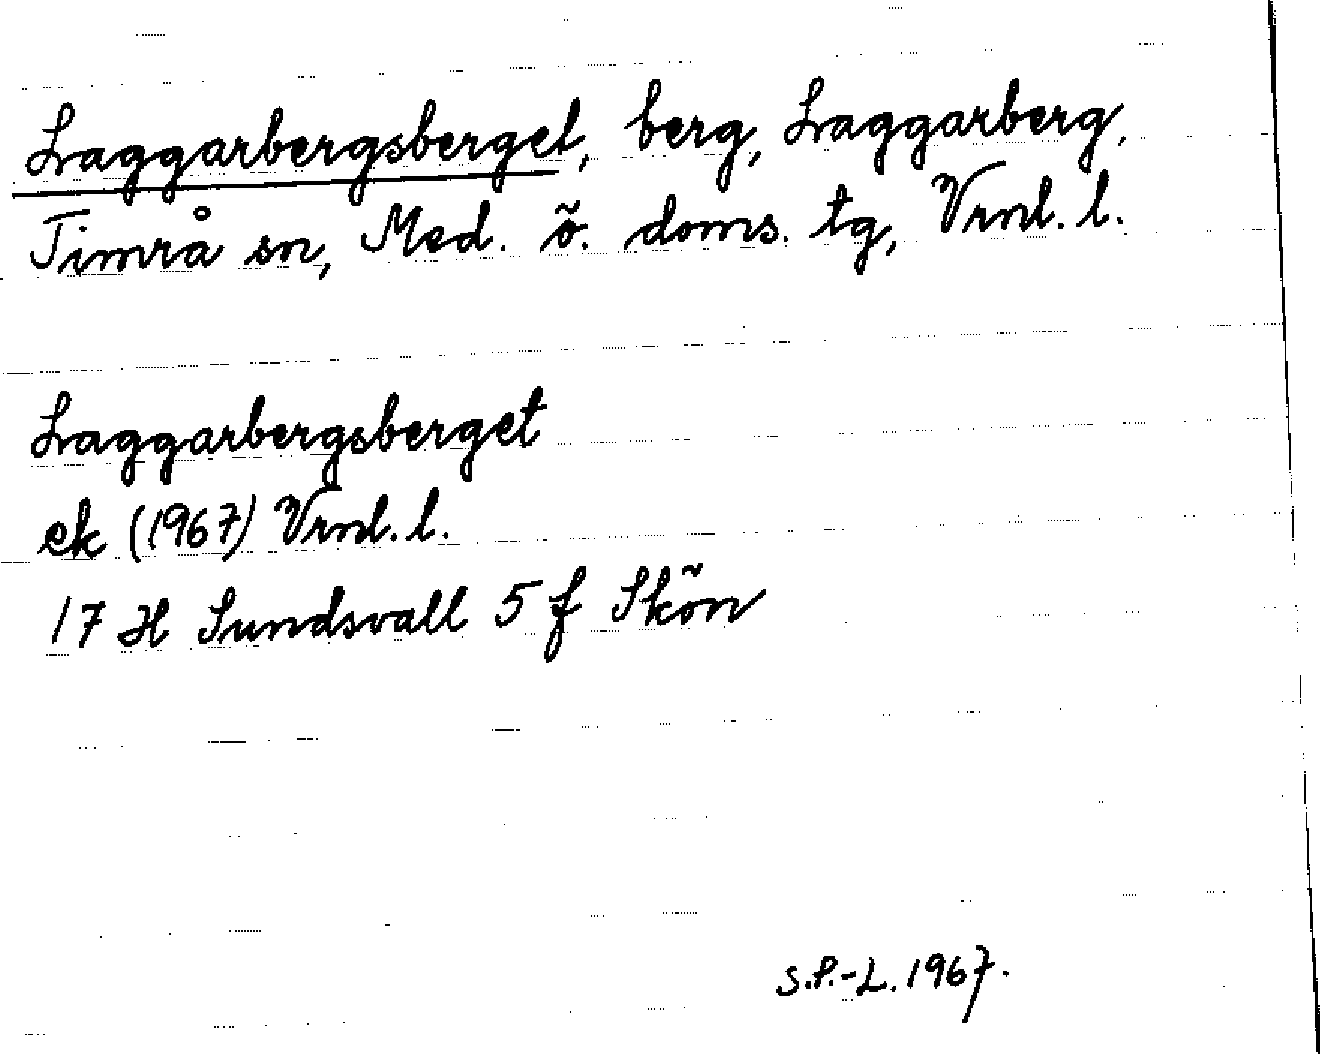 Laggarbergsberget, berg, Laggarberg,
Timrå sn, Med. ö. doms. tg, Vrnl. l.
Laggarbergsberget
ek (1967) Vrnl. l.
17 H Sundsvall 5 f Skön
S.P.-L. 1967.